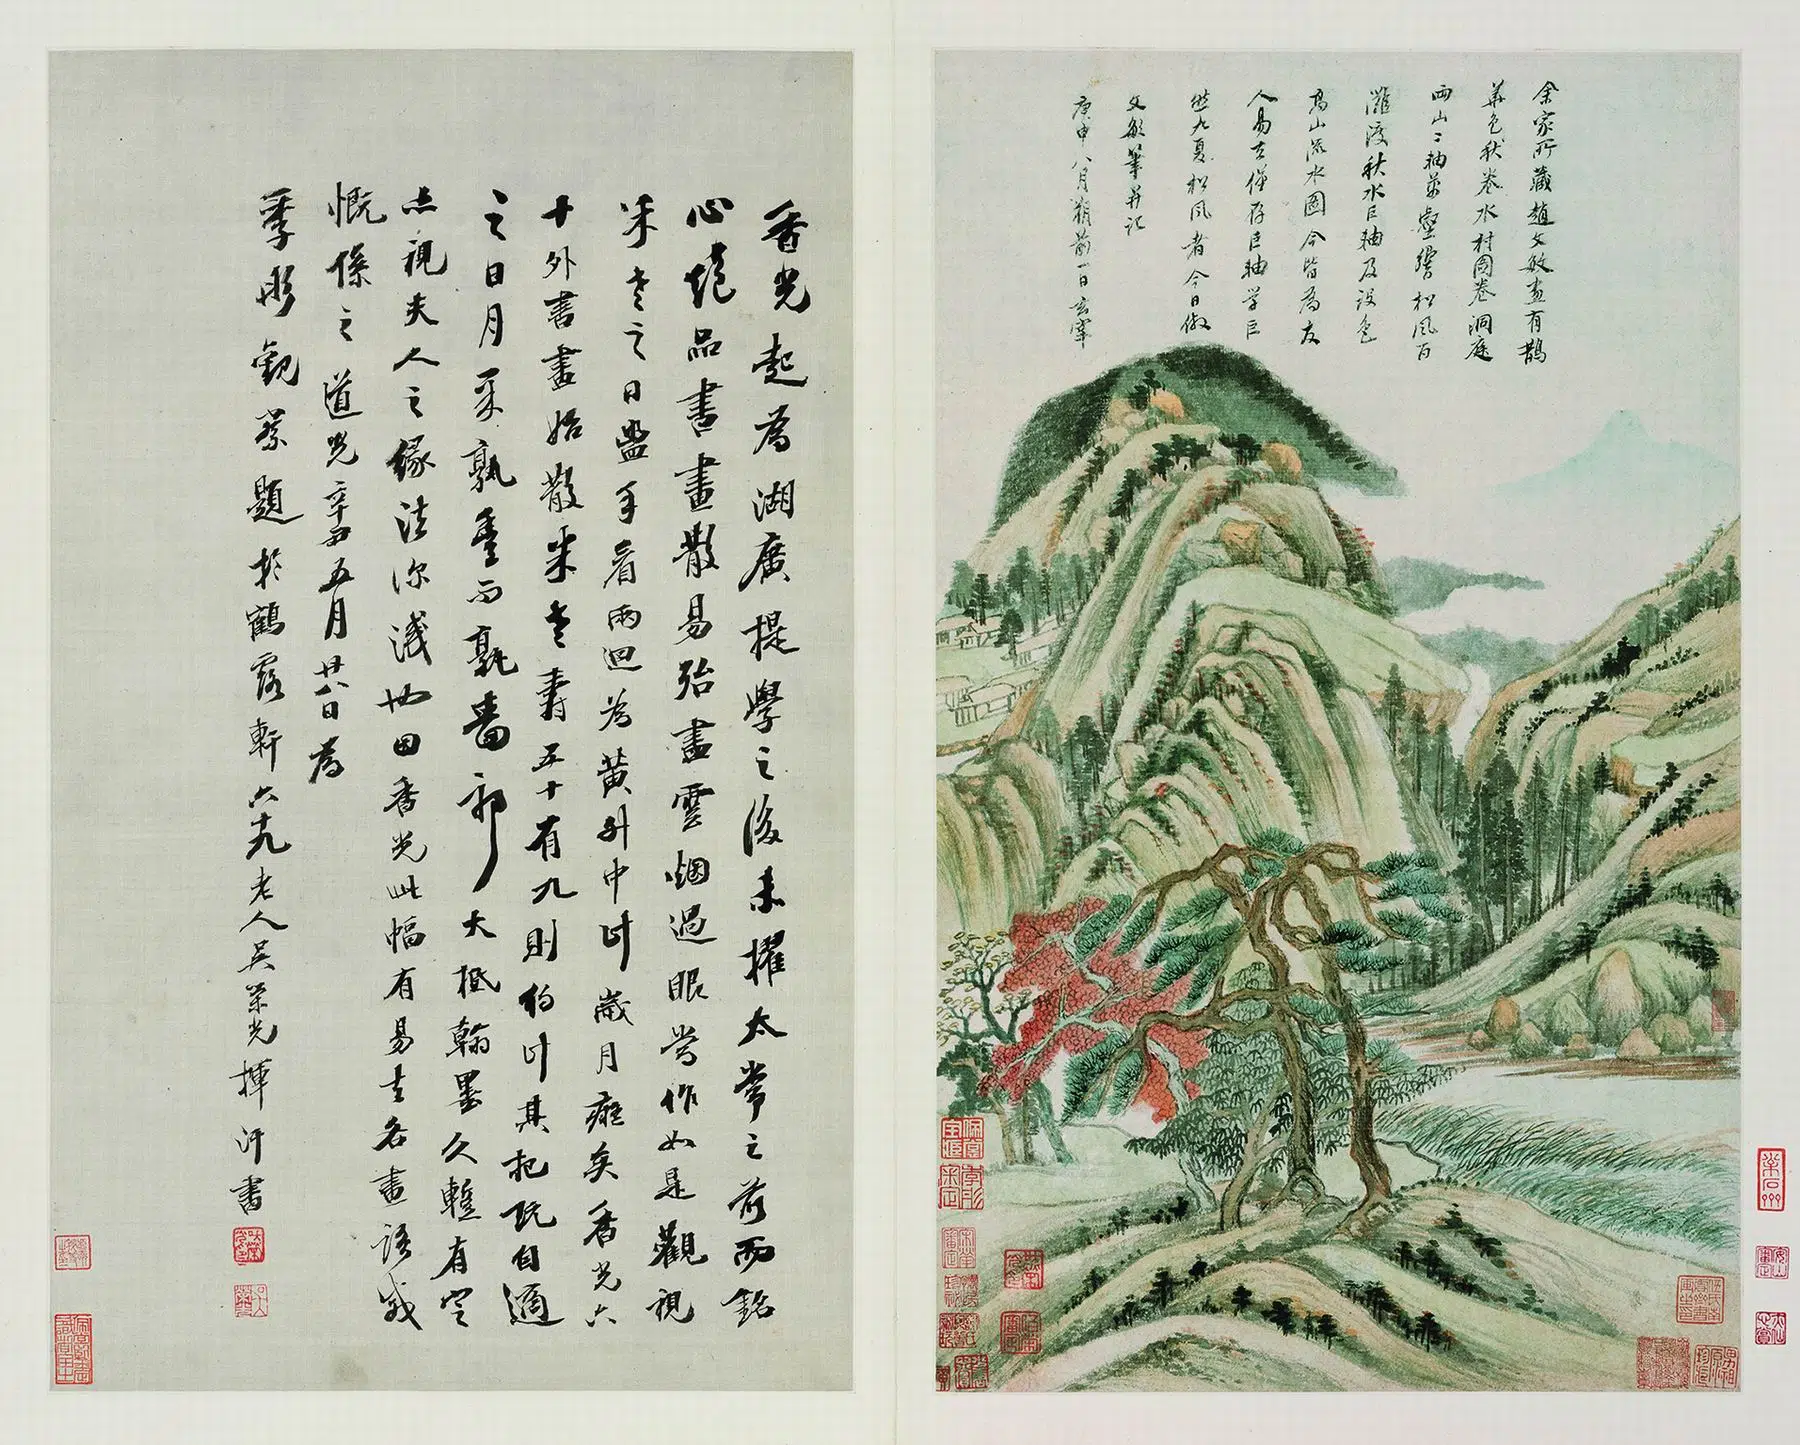 余家所藏趙文敏畫有鵲
華色秋卷水村圖卷洞庭
兩山二軸萬壑響松風百
灘渡秋水巨軸及設色
高山流水圖今皆為友
人易去僅存巨軸學巨
然九夏松風者今日倣
文敏筆并記
庚申八月朔前一日玄宰
香光起為湖廣提學之後未擢太常之前而銘
心絕品書畫散易殆盡雲烟過眼當作如是觀視
米老之日盥手看兩迴為黃州中計歲月疵矣香光六
十外書畫始散米老壽五十有九則約計其把玩自適
之日月采孰豐而孰嗇耶大抵翰墨久暫有定
点視夫人之緣法深淺也因香光此幅有易去名畫語感
慨係之道光辛丑五月廿八日為
季彤觀察題於鶴露軒六十九老人吳榮光揮汗書